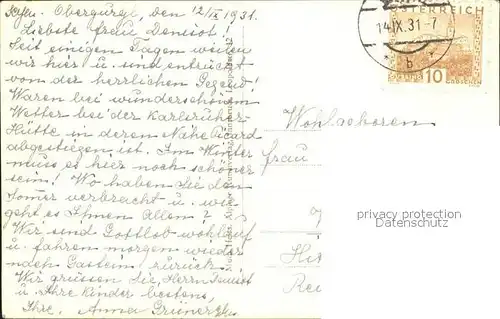 Obergurgl, den 12/IX 1931.
Liebste Frau Denisot!
Seit einigen Tagen weilen
wir hier u. sind entzückt
von der herrlichen Gegend!
Waren bei wunderschönem
Wetter bei der Karlsruher-
Hütte in deren Nähe Picard
abgestiegen ist. Im Winter
muss es hier noch schöner
sein! Wo haben Sie den
Somer verbracht u. wie
geht es Ihnen Allen?
Wir sind Gottlob wohlauf
u. fahren morgen wieder
nach Gastein zurück.
Wir grüssen Sie, Herrn Denisot
u. Ihre Kinder bestens,
Ihre Anna Grüner
ÖSTERREICH
14.IX.31-7
* b *
10
Wohlgeboren
Frau
privacy protection
Datenschutz